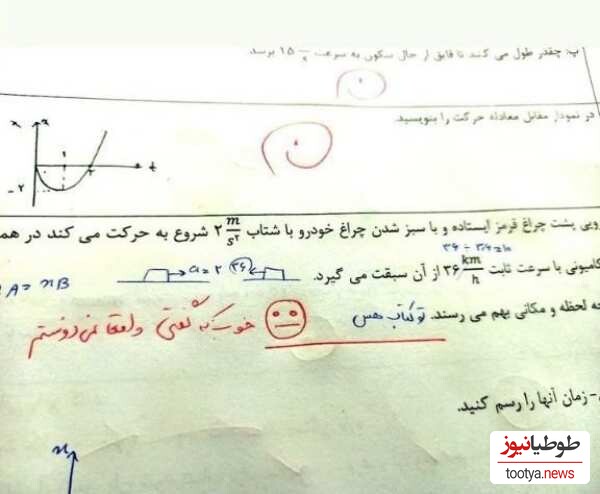 پ: چقدر طول می کشد تا قایق از حال سکون به سرعت ۱۵ m/s برسد
در نمودار مقابل معادله حرکت را بنویسید.
x
t
-۲
رویی پشت چراغ قرمز ایستاده و با سبز شدن چراغ خودرو با شتاب ۲ m/s² شروع به حرکت می کند در هم
کامیونی با سرعت ثابت ۳۶ km/h از آن سبقت می گیرد.
a=۲
۳۶
A = xB
چه لحظه و مکانی بهم می رسند.
تو کتاب هس
خوب که گفتی واقعا نمی دونستم
- زمان آنها را رسم کنید.
x
طوطیانیوز
tootya.news